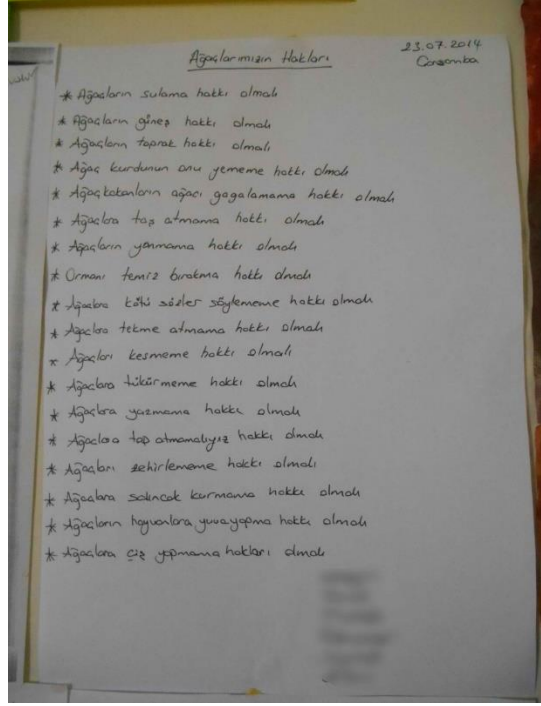 Ağaçlarımızın Hakları
23.07.2014
Çarşamba
* Ağaçların sulama hakkı olmalı
* Ağaçların güneş hakkı olmalı
* Ağaçların toprak hakkı olmalı
* Ağaç kurdunun onu yememe hakkı olmalı
* Ağaçkakanların ağacı gagalamama hakkı olmalı
* Ağaçlara taş atmama hakkı olmalı
* Ağaçların yanmama hakkı olmalı
* Ormanı temiz bırakma hakkı olmalı
* Ağaçlara kötü sözler söylememe hakkı olmalı
* Ağaçlara tekme atmama hakkı olmalı
* Ağaçları kesmeme hakkı olmalı
* Ağaçlara tükürmeme hakkı olmalı
* Ağaçlara yazmama hakkı olmalı
* Ağaçlara top atmamalıyız hakkı olmalı
* Ağaçları zehirlememe hakkı olmalı
* Ağaçlara salıncak kurmama hakkı olmalı
* Ağaçların hayvanlara yuva yapma hakkı olmalı
* Ağaçlara çiş yapmama hakları olmalı